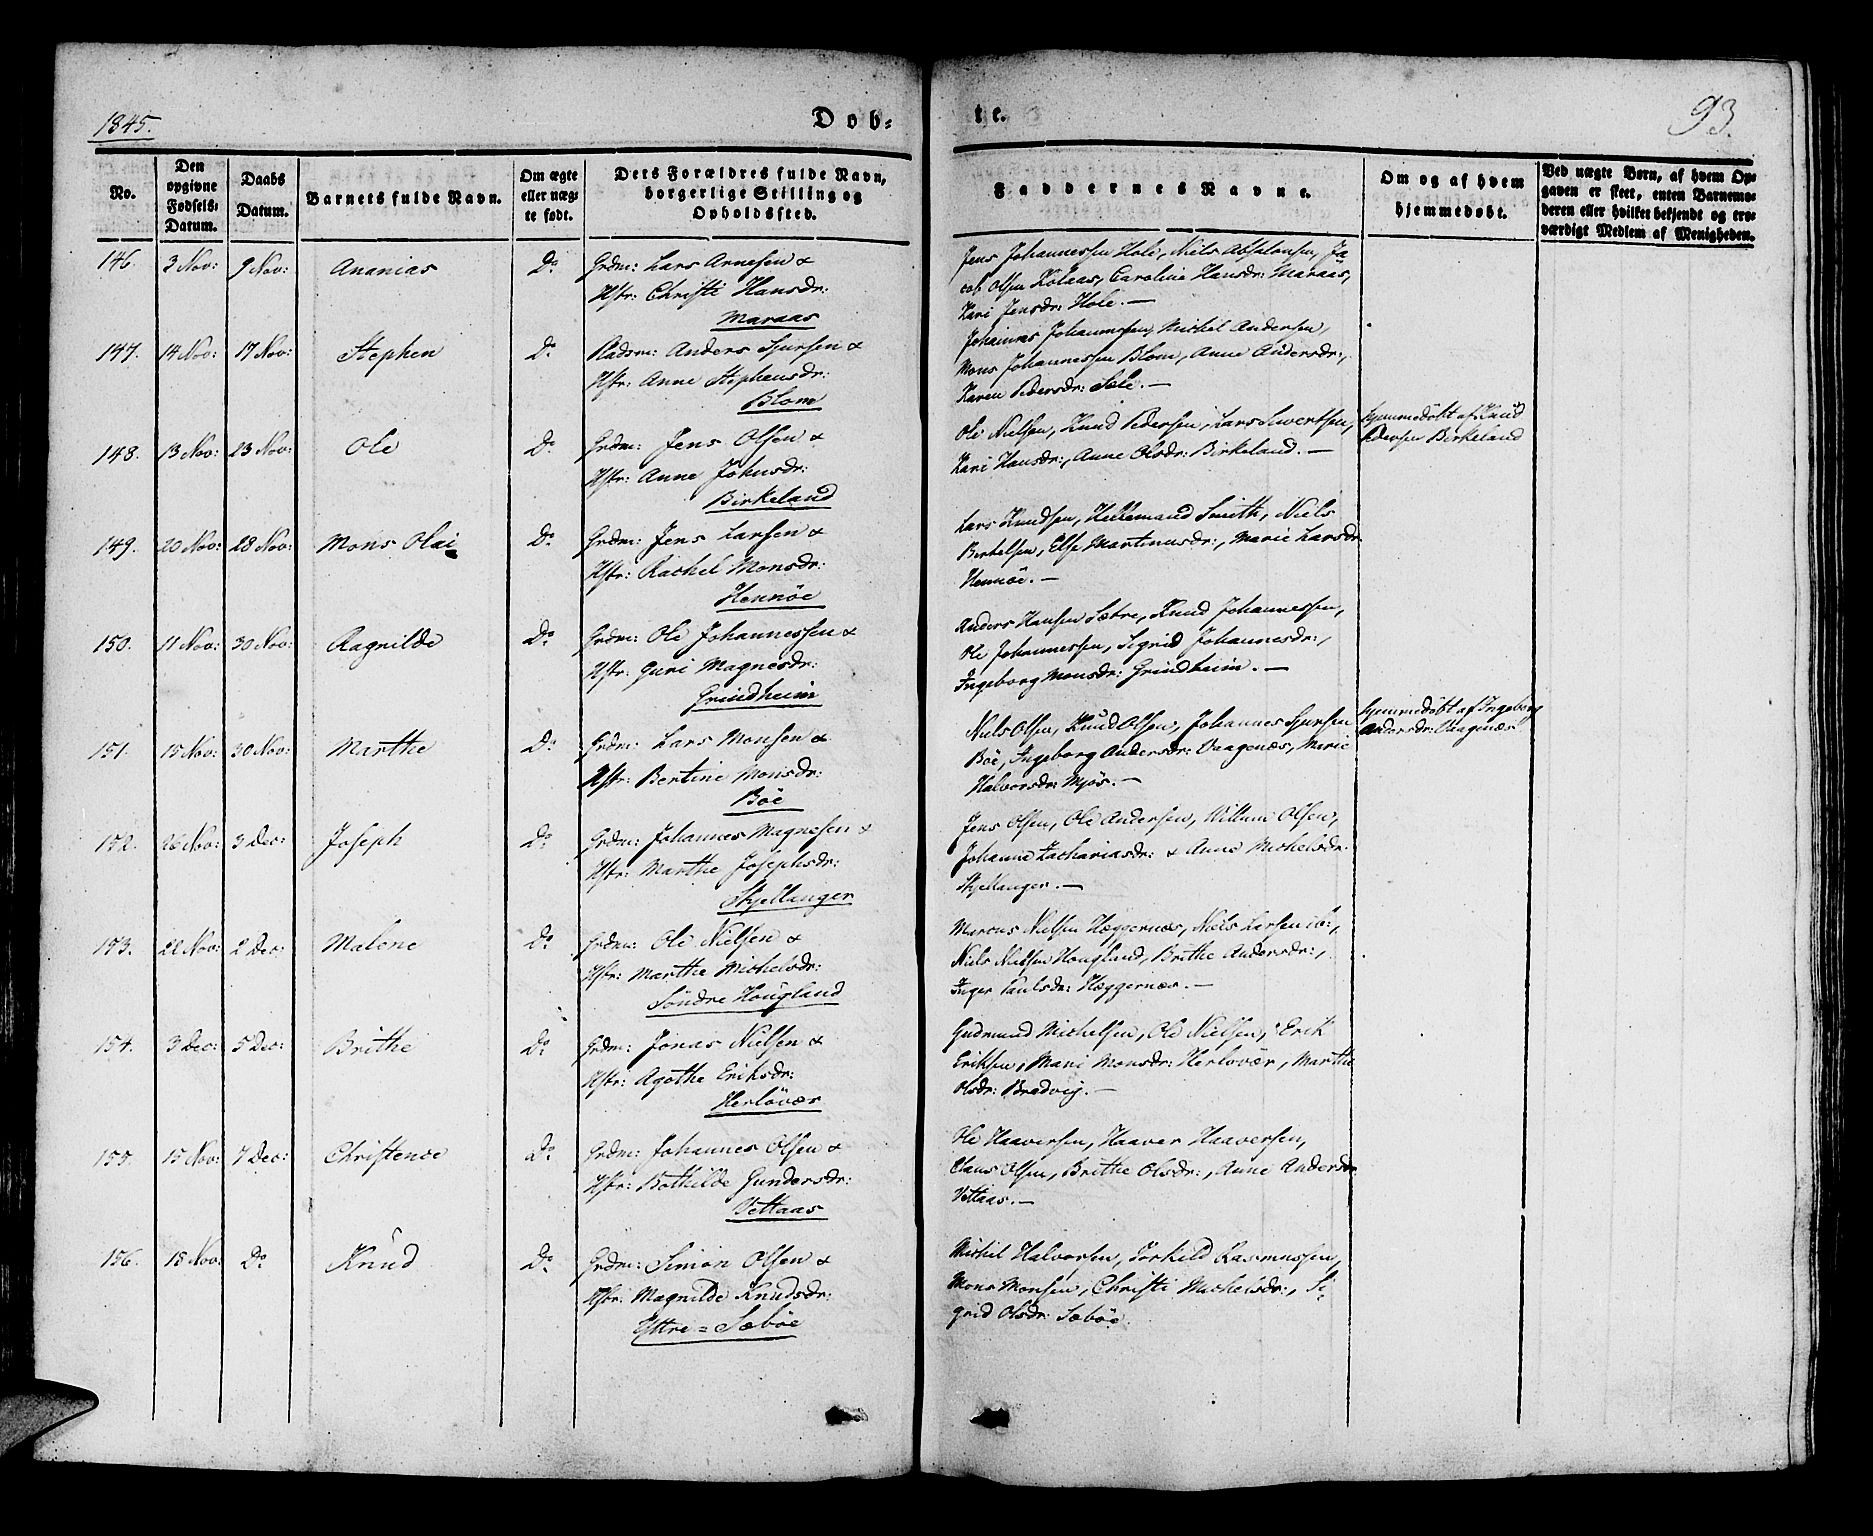 1845.
Dob=
te.
93.
No.
Den opgivne Fødsels-Datum.
Daabs Datum.
Barnets fulde Navn.
Om ægte eller uæg-te født.
Dets Forældres fulde Navn, borgerlige Stilling og Opholdssted.
Faddernes Navne.
Om og af hvem hjemmedøbt.
Ved uægte Børn, af hvem Op-
gaven er skeet, enten Barnemo-
deren eller hvilket bekjendt og tro-
værdigt Medlem af Menigheden.
146. 3 Nov: 9 Nov: Ananias Do Grdm: Lars Arnesen &
Hstr: Christi Hansdr:
Maraas
Jens Johannessen Hole, Niels Absalonsen, Ja-
cob Olsen Kolaas, Caroline Hansdr: Maraas,
Kari Jensdr: Hole. —
147. 14 Nov: 17 Nov: Stephen Do Pladsm: Anders Sjursen &
Hstr: Anne Stephensdr:
Blom
Johannes Johannessen, Michel Andersen,
Mons Johannessen Blom, Anne Andersdr:,
Karen Pedersdr: Sele. —
148. 13 Nov: 23 Nov: Ole Do Grdm: Jens Olsen &
Hstr: Anne Johnsdr:
Birkeland
Ole Nielsen, Knud Pedersen, Lars Sivertsen,
Kari Hansdr:, Anne Olsdr: Birkeland. —
hjemmedøbt af Knud
Pedersen Birkeland
149. 20 Nov: 28 Nov: Mons Olai Do Grdm: Jens Larsen &
Hstr: Rachel Monsdr:
Hennøe
Lars Knudsen, Smith, Niels
Bertelsen, Else Martinusdr:, Marie Larsdr:
Hennøe. —
150. 11 Nov: 30 Nov: Ragnilde Do Grdm: Ole Johannessen &
Hstr: Guri Magnesdr:
Grindheim
Anders Hansen Sætre, Knud Johannessen,
Ole Johannessen, Sigrid Johannesdr:,
Ingeborg Monsdr: Grindheim. —
151. 15 Nov: 30 Nov: Marthe Do Grdm: Lars Monsen &
Hstr: Bertine Monsdr:
Bøe
Niels Olsen, Knud Olsen, Johannes Sjursen
Bøe, Ingeborg Andersdr: Vaagenæs, Marie
Halvorsdr: Mjøs. —
hjemmedøbt af Ingeborg
Andersdr: Vaagenæs
152. 26 Nov: 3 Dec: Joseph Do Grdm: Johannes Magnesen &
Hstr: Marthe Josephsdr:
Skjellanger
Jens Olsen, Ole Andersen, Willum Olsen,
Johanne Zachariasdr: & Anne Michelsdr:
Skjellanger. —
153. 22 Nov: 2 Dec: Malene Do Grdm: Ole Nielsen &
Hstr: Marthe Michelsdr:
Søndre Hougland
Marcus Nielsen Hæggernæs, Niels Larsen ib:,
Niels Nielsen Hougland, Brithe Andersdr:,
Inger Paulsdr: Hæggernæs. —
154. 3 Dec: 5 Dec: Brithe Do Grdm: Jonas Nielsen &
Hstr: Agathe Eriksdr:
Herløvær
Gudmund Michelsen, Ole Nielsen, Erik
Eriksen, Mari Monsdr: Herløvær, Marthe
Olsdr: Bradvig. —
155. 15 Nov: 7 Dec: Christence Do Grdm: Johannes Olsen &
Hstr: Bothilde Gundersdr:
Vettaas
Ole Haaversen, Haaver Haaversen,
Claus Olsen, Brithe Olsdr:, Anne Andersdr:
Vettaas. —
156. 15 Nov: Do Knud Do Grdm: Simon Olsen &
Hstr: Magnilde Knudsdr:
Yttre=Sæbøe
Michel Halvorsen, Torkild Rasmussen,
Mons Monsen, Christi Michelsdr:, Si-
grid Olsdr: Sæbøe.